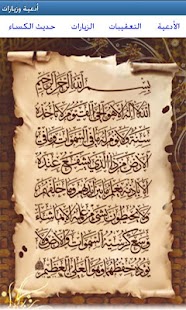 أدعية وزيارات
الأدعية التعقيبات الزيارات حديث الكساء
بِسْمِ اللهِ الرَّحْمٰنِ الرَّحِيمِ
اللهُ لَا إِلٰهَ إِلَّا هُوَ الْحَيُّ الْقَيُّومُ لَا تَأْخُذُهُ
سِنَةٌ وَلَا نَوْمٌ لَهُ مَا فِي السَّمٰوَاتِ وَمَا فِي
الْأَرْضِ مَنْ ذَا الَّذِي يَشْفَعُ عِنْدَهُ
إِلَّا بِإِذْنِهِ يَعْلَمُ مَا بَيْنَ أَيْدِيهِمْ وَمَا خَلْفَهُمْ
وَلَا يُحِيطُونَ بِشَيْءٍ مِنْ عِلْمِهِ إِلَّا بِمَا شَاءَ
وَسِعَ كُرْسِيُّهُ السَّمٰوَاتِ وَالْأَرْضَ وَلَا
يَؤُدُهُ حِفْظُهُمَا وَهُوَ الْعَلِيُّ الْعَظِيمُ